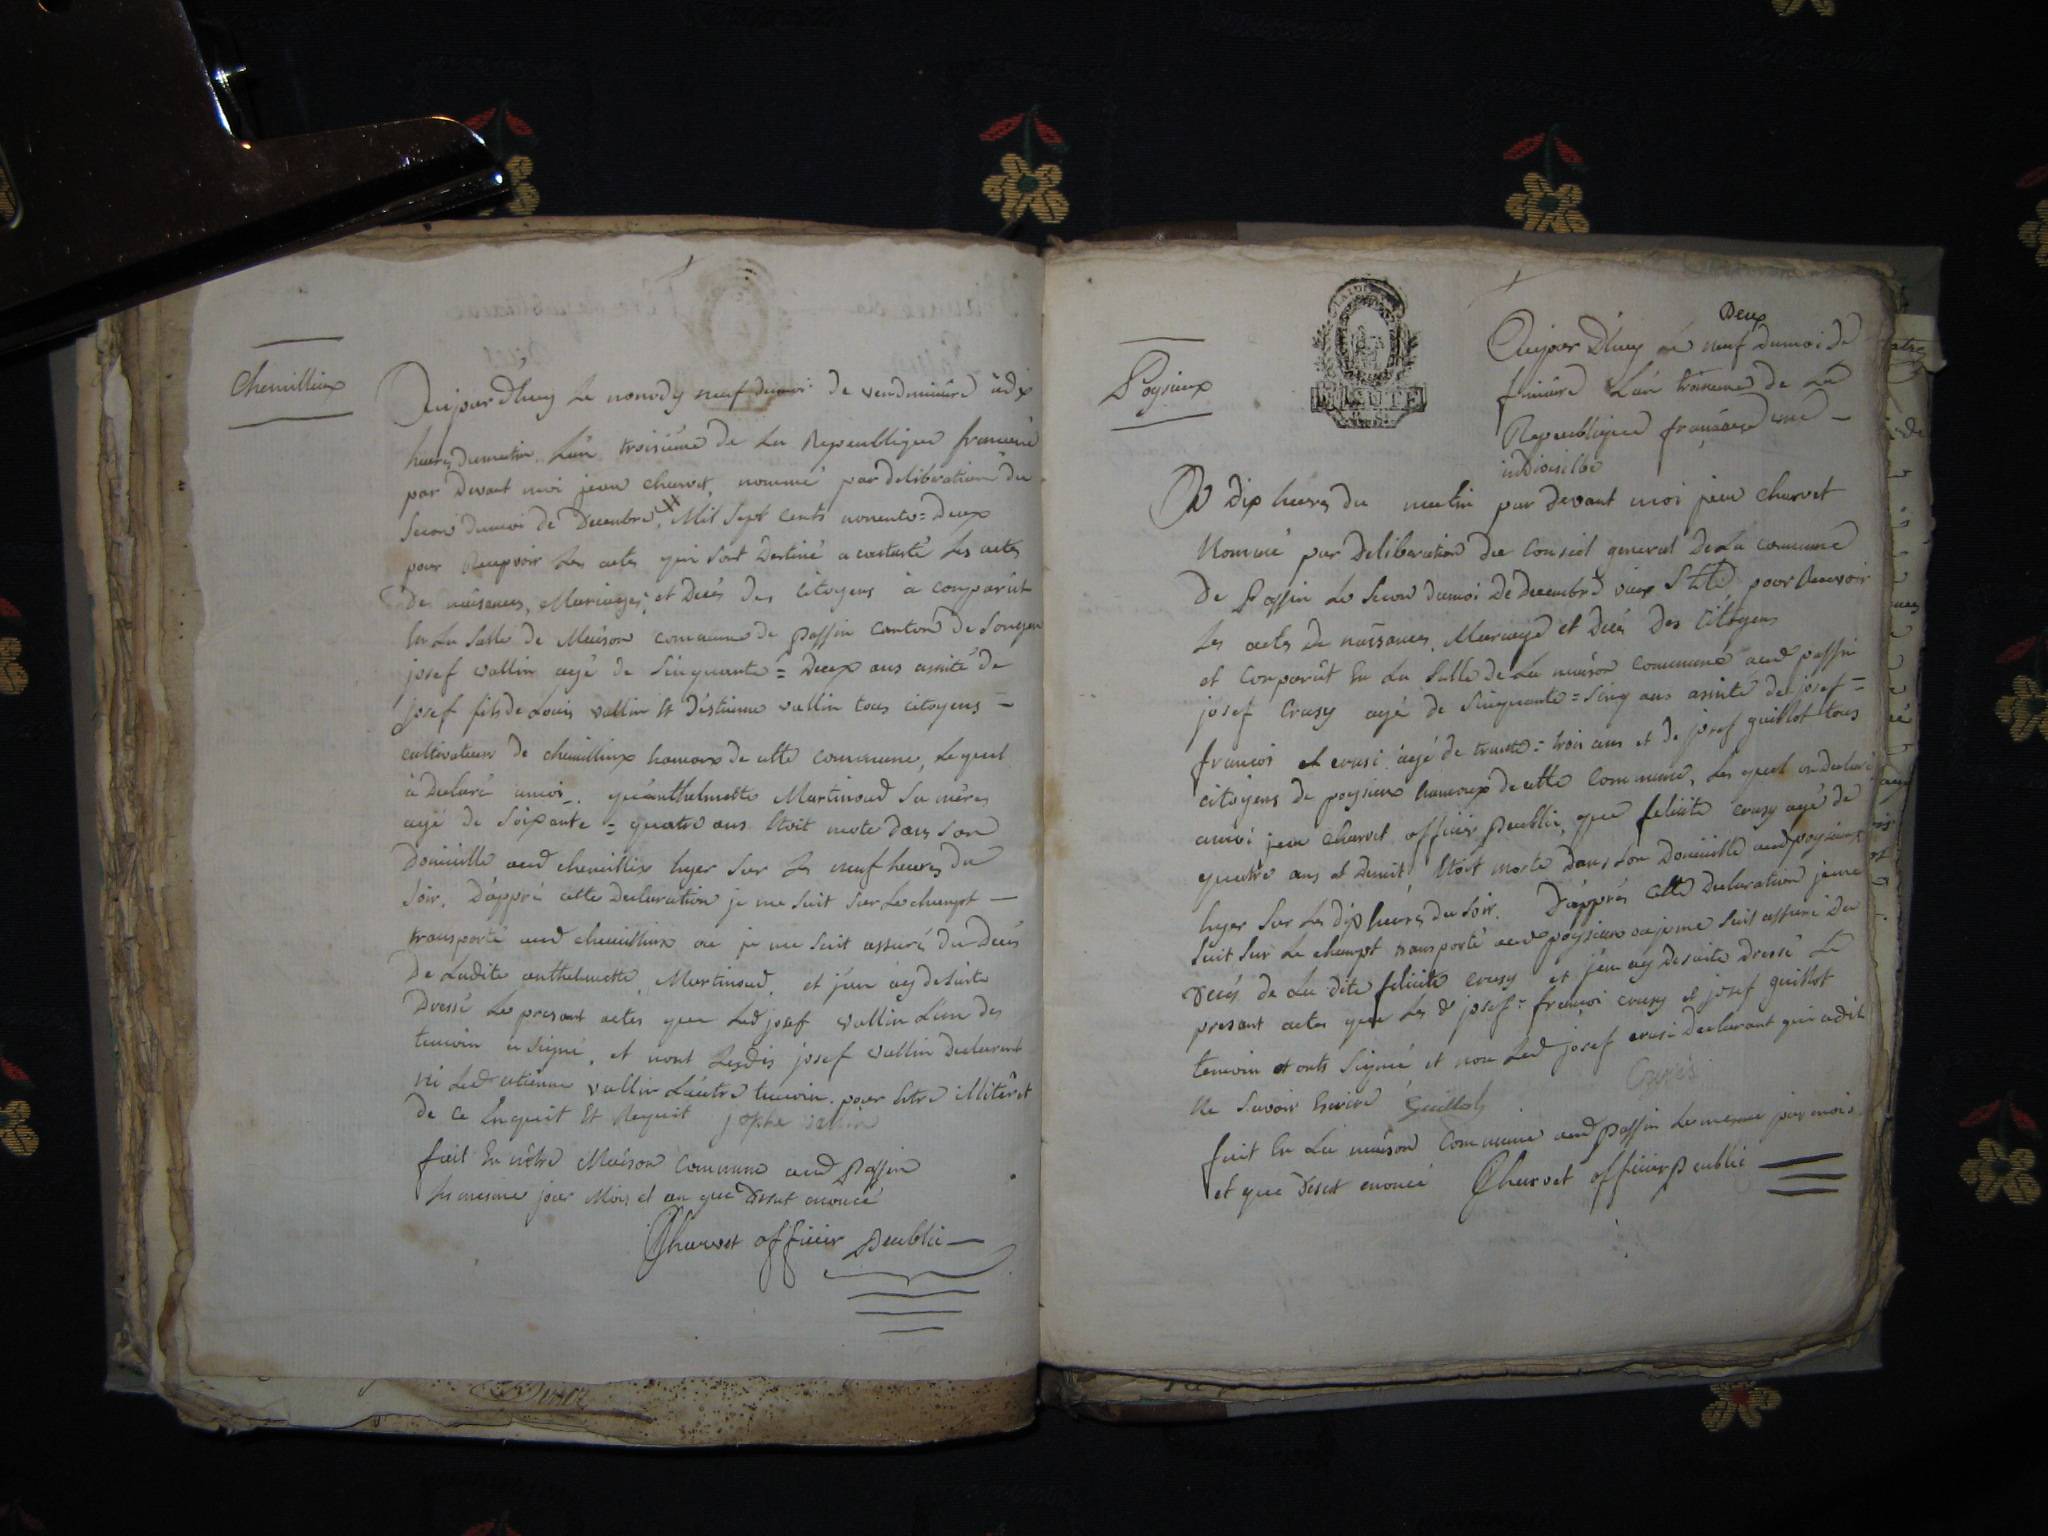 Chemillieux
Aujourd'huy le nonody neuf dumoi de vendemiere à dix
heures dumatin L'an troisieme de La Republique francaise
par devant moi jean charvet, nommé par deliberation du
Secon dumoi de Decembre, Mil Sept Cents nonente = Deux
pour Recepvoir Les actes qui sont Destiné a constaté Les actes
De naisances, Mariages, et Decés Des Citoyens à comparüt
En La Salle de Maison commune de Passin canton de Songieu
josef vallin agé de Sinquante = Deux ans asisté de
josef fils de Louis vallin Et D'estienne vallin tous citoyens =
cultivateur de chemillieux hameaux de cette commune, Lequel
à Declaré amoi quanthelmette Martinaud Sa mère
agé de Soixante = quatre ans Etoit morte dans Son
Domicille aud chemillix hyer Sur les neuf heures du
Soir. D'apprè cette Declaration je me Suit Sur Le champt —
transporté aud chemillieux ou je me Suit assuré du Decés
De Ladite anthelmette Martinaud, et j'en ay desuite
Dressé Le presant actes que Led josef vallin L'un des
temoin a signé, et nont Lesdis josef vallin Declarant
ni Led etienne vallin L'autre temoin pour Etre illiteret
de ce Enquit Et Requit jophe vallin
fait En nôtre Maison Commune aud Passin
Les mesme jour Mois et an que Desut enoncé
Charvet officier Peublic —
Poysieux
LA LOI
Deux
Aujourd'huy neuf dumoi de
frimaire L'an troisieme de La
Republique française une —
indivisilbe
A Dix heures du matin par devant moi jean charvet
Nommé par Deliberation du Conseil general De La commune
De Passin Le Secon dumoi De Decembre vieux Stile pour Recevoir
Les actes de naissances, Mariage et Decés Des Citoyens
et Comparût En La Salle de La maison Commune aud passin
josef Crusy agé de Sinquante = Sinq ans asisté de josef =
francois et crusi agé de trante = trois ans et de josef guillot tous
citoyens de poysieux hamoux de cette Commune, Lesquel on declaré
amoi jean charvet officier Peublic, que felicite crusy agé de
quatre ans et Demit Etoit morte Dans Son Domicille aud poysieux
hyer Sur Les dix heures du Soir. D'apprés cette Declaration jeme
Suit Sur Le champt transporté aud poysieux ou je me Suit assuré Du
Decés de La Dite felicite crusy et j'en ay Desuite Dressé Le
presant actes que Les d josef = francoi crusy et josef guillot
temoin et onts Signé et non Led josef crusi Declarant qui adit
Ne Savoir Ecrire Guillot
fait En La maison Commune aud Passin Le mesme jour mois
et que Desut enoncé Charvet officier Peublic